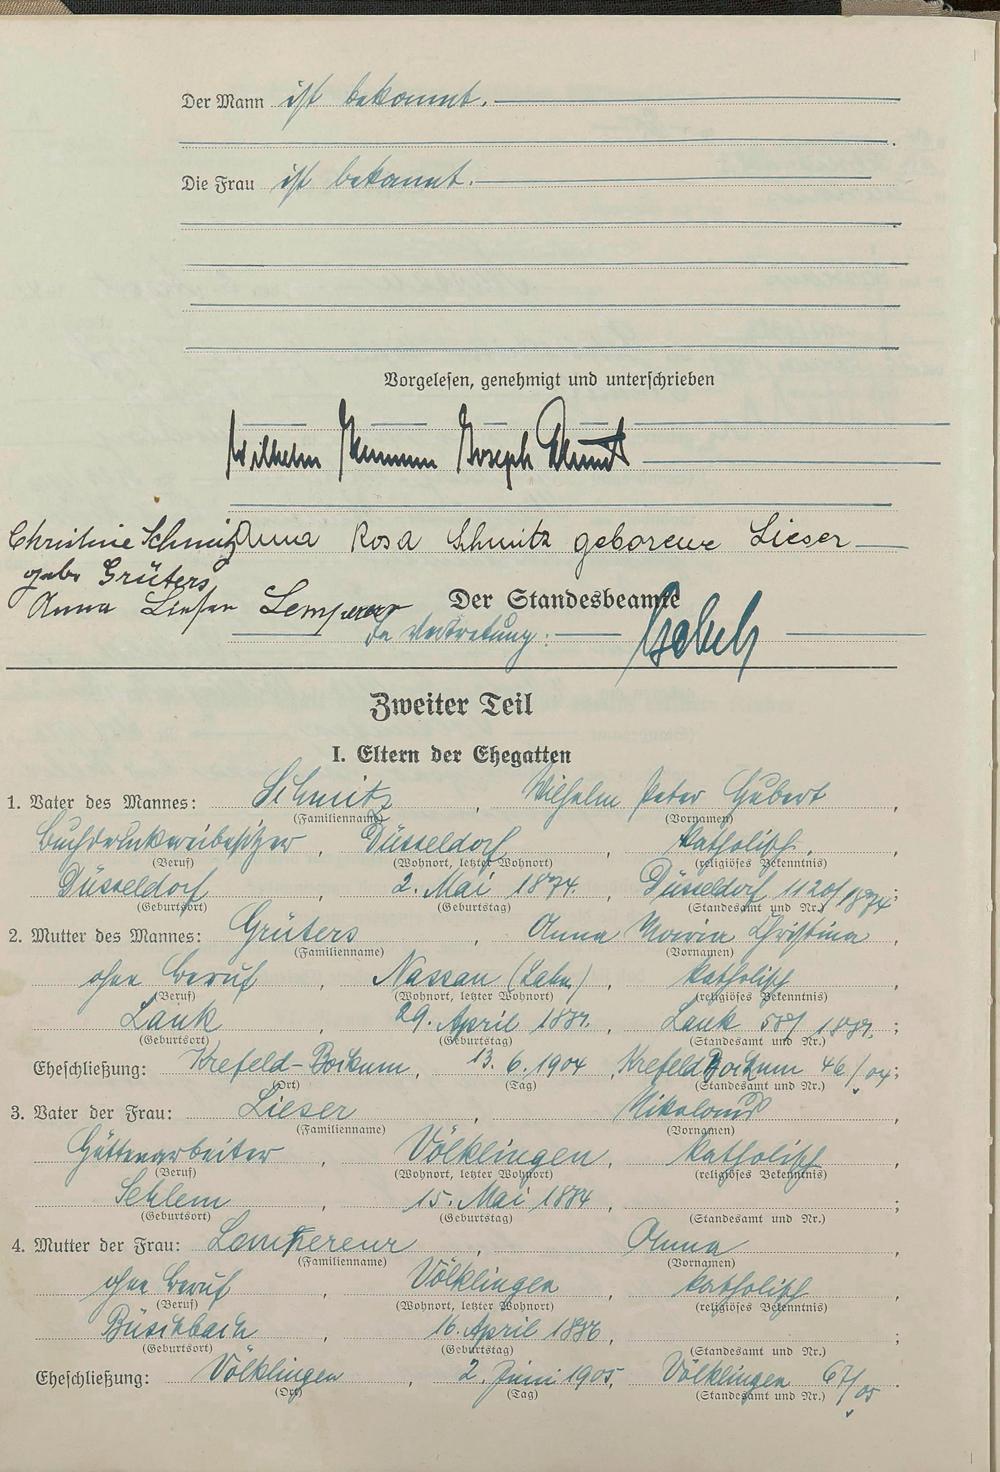 Der Mann ist bekannt.
Die Frau ist bekannt.
Vorgelesen, genehmigt und unterschrieben
Wilhelm Hermann Joseph Schmitz
Anna Rosa Schmitz geborene Lieser
Christine Schmitz
geb. Grüters
Anna Lieser Lempereur
Der Standesbeamte
In Vertretung:
Zweiter Teil
I. Eltern der Ehegatten
1. Vater des Mannes: Schmitz, Wilhelm Peter Hubert,
(Familienname) (Vornamen)
Buchdruckereibesitzer, Düsseldorf, katholisch,
(Beruf) (Wohnort, letzter Wohnort) (religiöses Bekenntnis)
Düsseldorf, 2. Mai 1874. Düsseldorf 1120/1874;
(Geburtsort) (Geburtstag) (Standesamt und Nr.)
2. Mutter des Mannes: Grüters, Anna Maria Christina,
(Familienname) (Vornamen)
ohne Beruf, Nassau (Lahn), katholisch,
(Beruf) (Wohnort, letzter Wohnort) (religiöses Bekenntnis)
Lank, 29. April Lank;
(Geburtsort) (Geburtstag) (Standesamt und Nr.)
Eheschließung: Krefeld-Bockum, 13. 6. 1904, Krefeld Bockum 46/04;
(Ort) (Tag) (Standesamt und Nr.)
3. Vater der Frau: Lieser, Nikolaus,
(Familienname) (Vornamen)
Hüttenarbeiter, Völklingen, katholisch,
(Beruf) (Wohnort, letzter Wohnort) (religiöses Bekenntnis)
Sehlem, 15. Mai 1884, ;
(Geburtsort) (Geburtstag) (Standesamt und Nr.)
4. Mutter der Frau: Lempereur, Anna,
(Familienname) (Vornamen)
ohne Beruf, Völklingen, katholisch,
(Beruf) (Wohnort, letzter Wohnort) (religiöses Bekenntnis)
Büschbach, 16. April 1886, ;
(Geburtsort) (Geburtstag) (Standesamt und Nr.)
Eheschließung: Völklingen, 2. Juni 1905, Völklingen 67/05.
(Ort) (Tag) (Standesamt und Nr.)